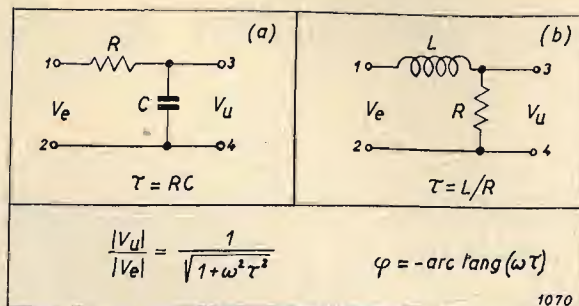 (a)
R
1
3
V_e
C
V_u
2
4
τ = RC
(b)
L
1
3
V_e
R
V_u
2
4
τ = L/R
|V_u| / |V_e| = 1 / √(1+ω²τ²)
φ = -arc tang(ωτ)
1070